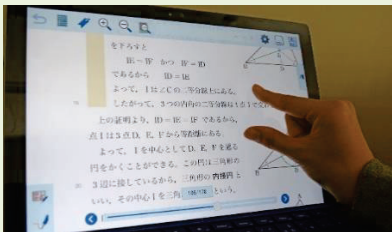 を下ろすと
IE=IF かつ IF=ID
であるから ID=IE
よって,Iは∠Cの二等分線上にある。
したがって,3つの内角の二等分線は1点Iで
上の証明より,ID=IE=IFであるから,
点Iは3点D,E,Fから等距離にある。
よって,Iを中心としてD,E,Fを通る
円をかくことができる。この円は三角形の
3辺に接しているから,三角形の内接円と
いい,その中心Iを三角 という。